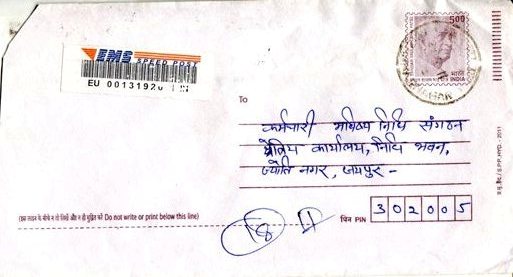 500
भारत INDIA
EMS SPEED POST
EU 00131926 1 IN
To
कर्मचारी भविष्य निधि संगठन
क्षेत्रिय कार्यालय, निधि भवन,
ज्योति नगर, जयपुर -
पिन PIN 302005
(इस लाइन के नीचे न तो लिखें और न ही मुद्रित करें Do not write or print below this line)